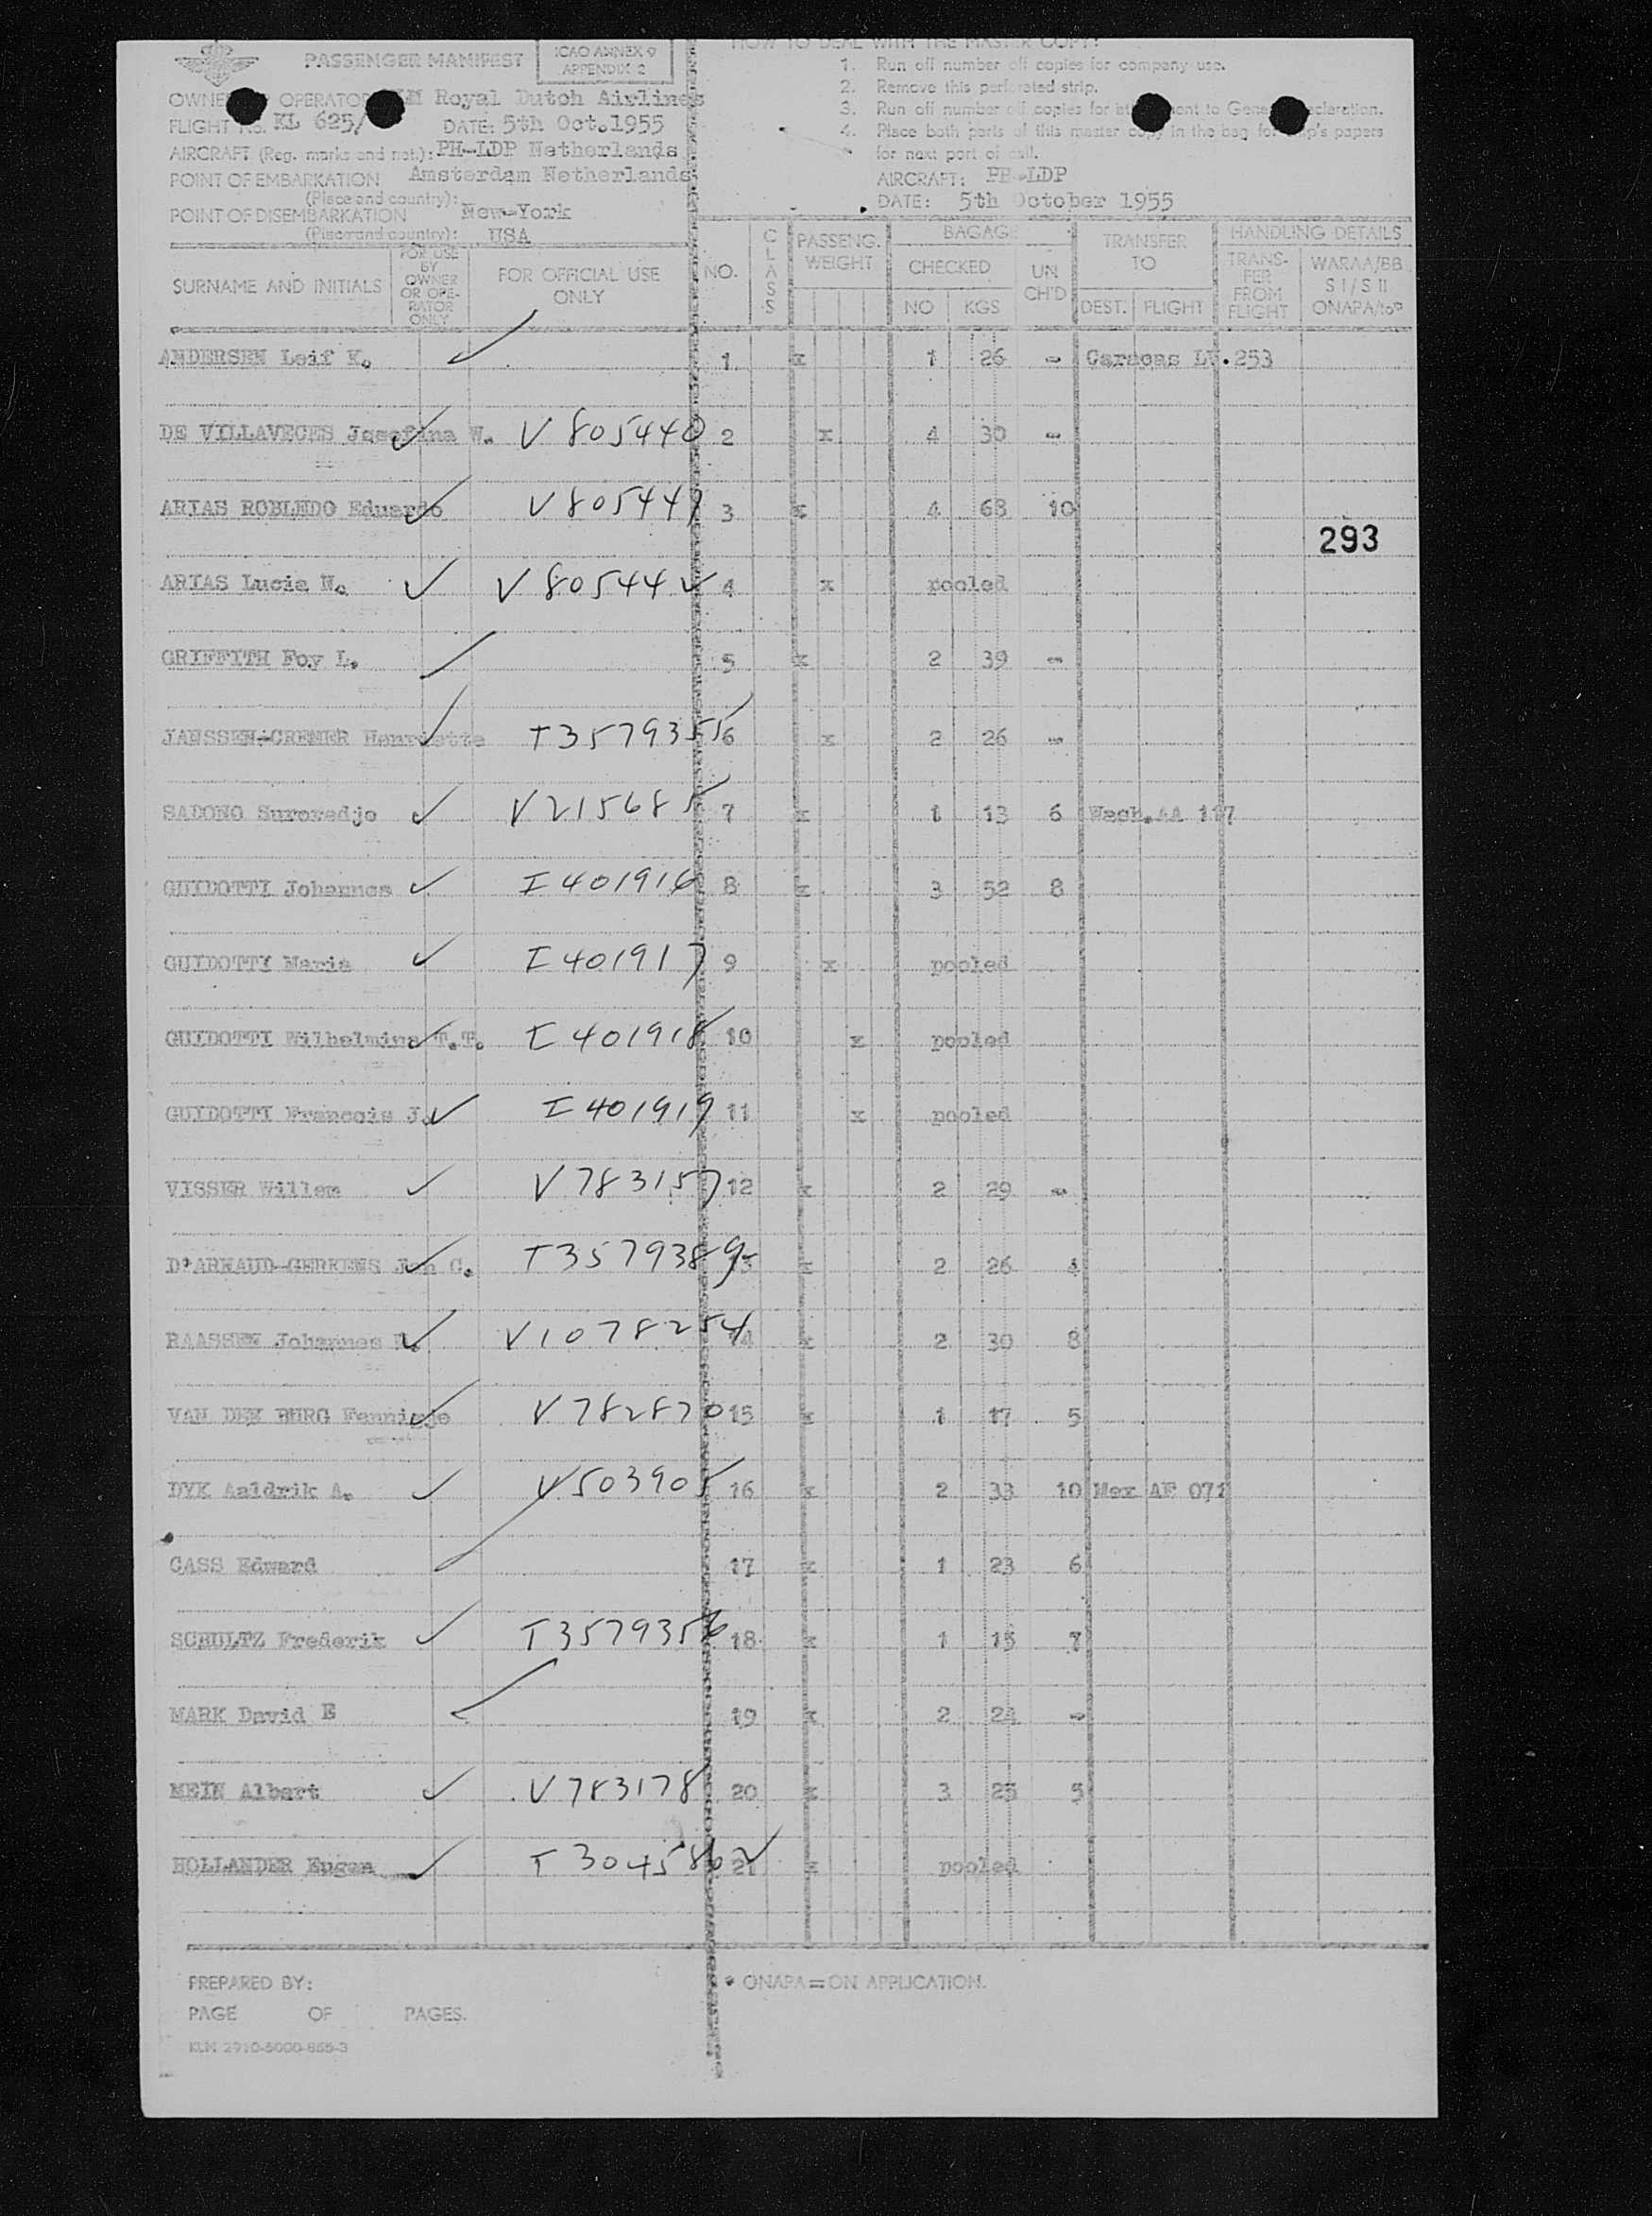 PASSENGER MANIFEST
ICAO ANNEX 9
APPENDIX 2
OPERATOR Royal Dutch Airlines
FLIGHT KL 625/
DATE: 5th Oct.1955
AIRCRAFT (Reg. marks and nat.): PH-LDP Netherlands
POINT OF EMBARKATION Amsterdam Netherlands
(Place and country):
POINT OF DISEMBARKATION New-York
(Place and country): USA
HOW TO DEAL WITH THE MASTER COPY:
1. Run off number off copies for company use.
2. Remove this perforated strip.
3. Run off number off copies for to
4. Place both parts of this master copy in the bag for papers
for next port of call.
AIRCRAFT: PH-LDP
DATE: 5th October 1955
SURNAME AND INITIALS
FOR USE BY OWNER OR OPE-RATOR ONLY
FOR OFFICIAL USE ONLY
NO.
CLASS
PASSENG. WEIGHT
BAGAGE
CHECKED
NO KGS
UN CH'D
TRANSFER TO
DEST. FLIGHT
HANDLING DETAILS
TRANS-FER FROM FLIGHT
WARAA/BB
S I / S II
ONAPA/
ANDERSEN Leif K. 1 x 1 26 - Caracas LV.253
DE VILLAVECES Josefina W. V 805440 2 x 4 30 -
ARIAS ROBLEDO Eduardo V 805441 3 x 4 68 10
293
ARIAS Lucia N. V 80544 4 x pooled
GRIFFITH Foy L. 5 x 2 39 -
JANSSEN-CREMER Henriette T3579355 6 x 2 26 -
SADONO Suroredjo V215685 7 x 1 13 6 Wash.AA 117
GUIDOTTI Johannes I 401916 8 x 3 52 8
GUIDOTTI Maria I 401917 9 x pooled
GUIDOTTI Wilhelmina T.T. I 401918 10 x pooled
GUIDOTTI Francois J. I 401919 11 x pooled
VISSER Willem V 783157 12 x 2 29 -
D'ARNAUD-GERKENS Jan C. T3579389 13 x 2 26 4
RAASSEN Johannes V1078254 14 x 2 30 8
VAN DEN BURG Fennigje V 782870 15 x 1 17 5
DYK Aaldrik A. V503905 16 x 2 33 10 Mex AF 071
CASS Edward 17 x 1 23 6
SCHULTZ Frederik T3579356 18 x 1 15 7
MARK David E 19 x 2 24 -
MEIN Albert V783178 20 x 3 25 5
HOLLANDER Eugen T 3045862 21 x pooled
PREPARED BY:
PAGE OF PAGES.
KLM 2910-5000-855-3
* ONAPA = ON APPLICATION.